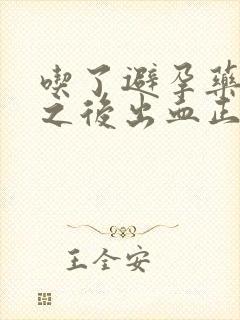 喫了避孕藥
之後出血正
王全安